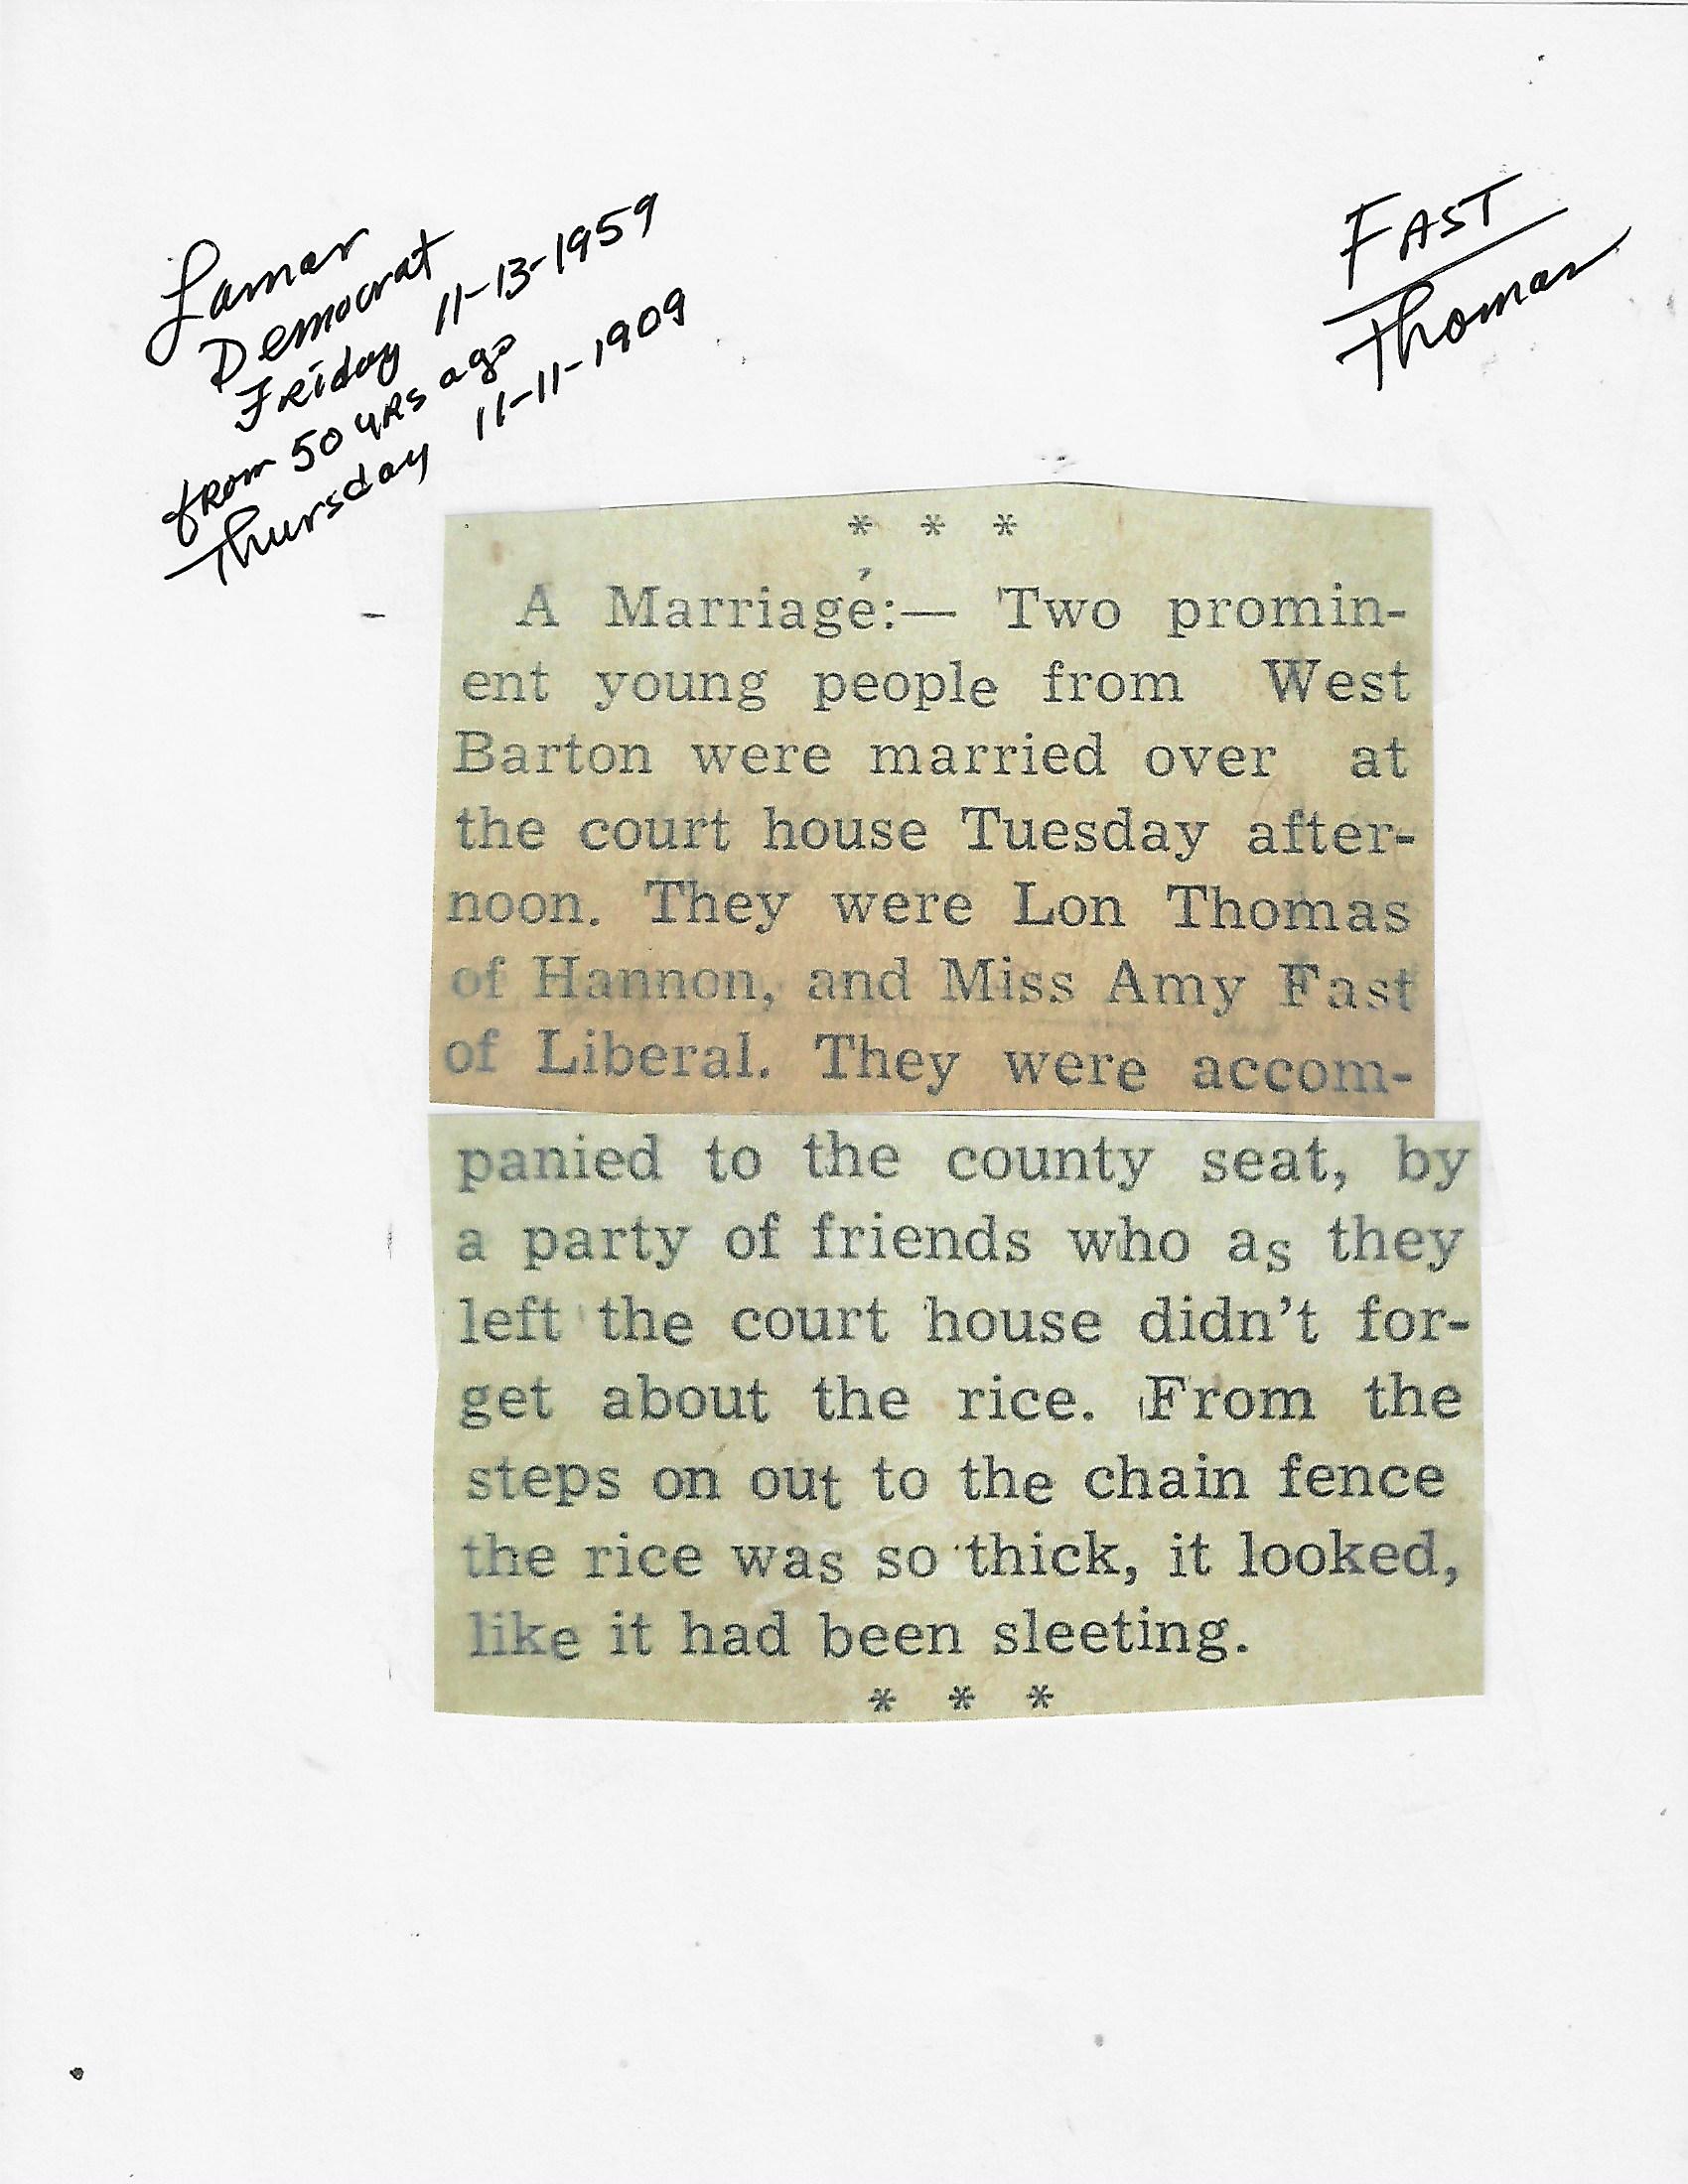 Lamar
Democrat
Friday 11-13-1959
from 50 yrs ago
Thursday 11-11-1909
FAST
Thomas
* * *
A Marriage:— Two promin-
ent young people from West
Barton were married over at
the court house Tuesday after-
noon. They were Lon Thomas
of Hannon, and Miss Amy Fast
of Liberal. They were accom-
panied to the county seat, by
a party of friends who as they
left the court house didn't for-
get about the rice. From the
steps on out to the chain fence
the rice was so thick, it looked,
like it had been sleeting.
* * *